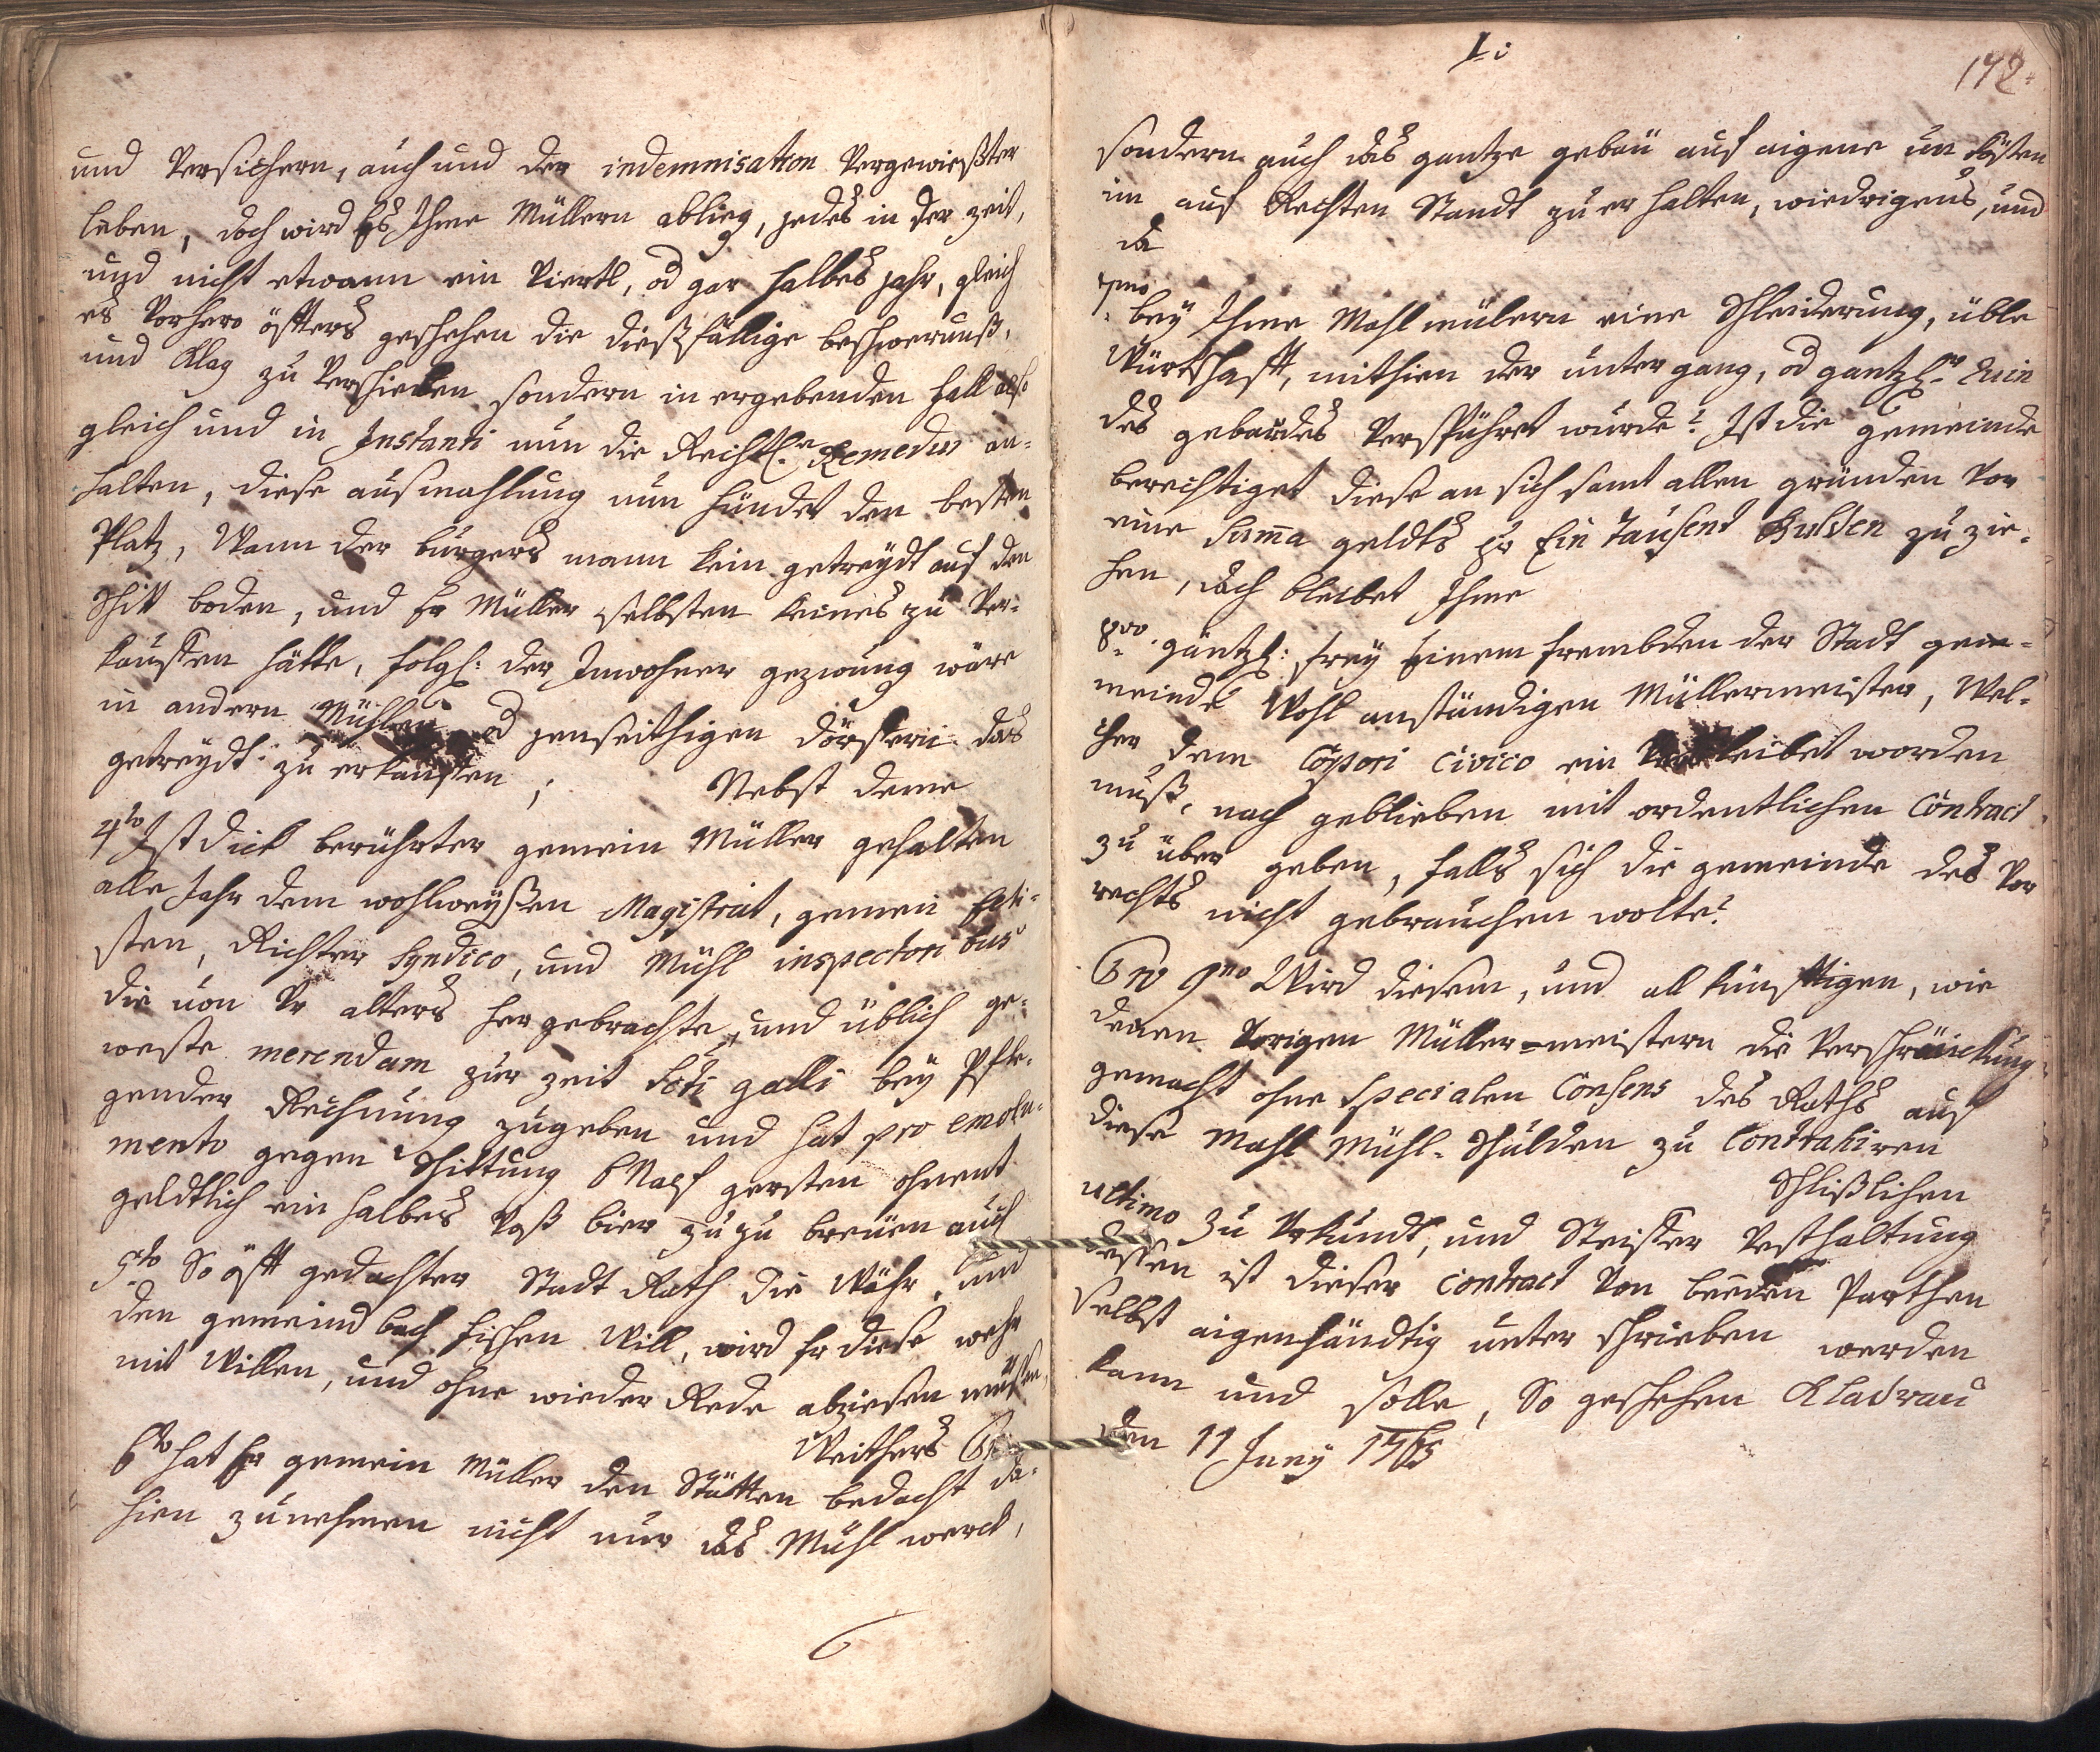 und Versichern, auch und der indemnisation Vergewießter
leben, doch wird Es Ihme Müllern oblieg, jedes in der zeit,
und nicht etwann ein Viertl, od gar halbes jahr, gleich
es Vorhero öffters geschehen die dießfällige beschwernuß,
und Klag zu Verschieben sondern in ergebenden fall also
gleich und in Instanti nun die Rechtl: Remedur an-
halten, diese ausmahlung nun fündet den besten
Platz, Wann der bürgers mann kein getreydt auf den
Schitt boden, und Er Müller selbsten keines zu Ver-
kauffen hätte, folgl: der Innwohner gezwung wäre
in andern Mühlen od jenseithigen dörffern das
getreydt zu erkauffen; Nebst deme
4to Ist dick berührter gemein Müller gehalten
alle Jahr dem wohlweyßen Magistrat, gemein Elti-
sten, Richter Syndico, und Mühl inspectoribus
die von Vor alters hergebrachte, und üblich ge-
weste merendam zur zeit Scti galli bey Pfle-
gender Rechnung zugeben und hat pro emolu-
mento gegen Schittung 6 Napf gersten ohnent
geldtlich ein halbes Vaß bier zu zu breuen auch
5to So offt gedachter Stadt Rath die Wöhr, und
den gemeind bach fischen Will, wird Er diese wehr
mit Willen, und ohne wieder Rede abziehen müßen,
Weithers
6to hat Er gemein Müller den Stätten bedacht da-
hien zunehmen nicht nur das Mühl werck,
172.
sondern auch das gantze gebäu auf aigene un kösten
im auf Rechten Standt zu erhalten, wiedrigens, und
da
7mo bey Ihme Mahl mülern eine Schleiderung, üble
Würthschafft, mithien der untergang, od gantzl: Ruin
des gebäudes Verspühret wurde? Ist die gemeinde
berechtiget diese an sich samt allen gründen vor
eine Suma geldts pr Ein Tausent Gulden zu zie-
hen, doch bleibet Ihme
8vo gäntzl: frey Einem frembden der Stadt gem-
meinde Wohl anständigen Müllermeister, Wel-
cher dem Corpori Civico ein leibet worden
muß, nach geblieben mit ordentlichen Contract
zu über geben, falls sich die gemeinde des Vor
rechts nicht gebrauchen wolte?
9no Wird diesem, und all künfftigen, wie
denen Vorigen Müller-meistern die Verschränckung
gemacht ohne Specialen Consens des Raths auf
diese Mahl Mühl-Schulden zu Contrahiren
Schlißlichen
ultimo zu Urkundt, und Steiffer Vesthaltung
dessen ist dieser Contract Von beeden Parthen
Selbst aigenhändtig unter schrieben werden
kann und solle, So geschehen Kladrau
den 11 Juny 1765